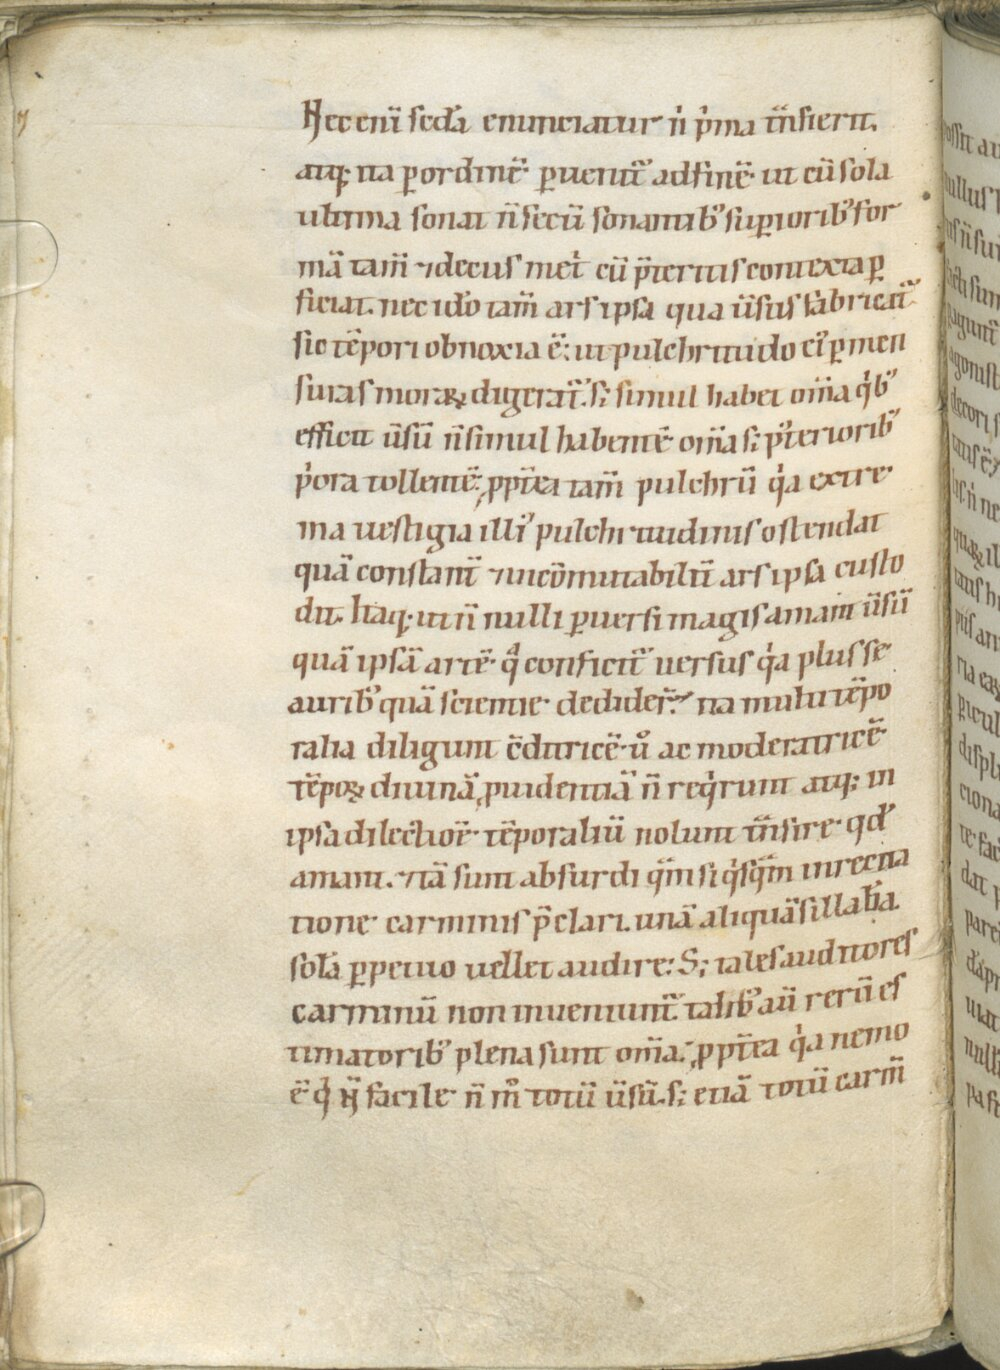 Nec eni᷒ scd̃a enunciatur n̓ p̓ma tñsierit.
atq; ita ꝑ ordinẽ· ꝑuenit᷒ ad finẽ· ut cũ sola
ultima sonat ñ secũ sonantib᷒ suꝑiorib᷒ for
mã tam̃ ⁊ decus met᷒ cũ p̃teritis contexta ꝑ
ficiat. nec id̓o tam̃ ars ipsa qua ũsus fabricat᷒
sic tẽpori obnoxia ẽ: ut pulchritudo ei᷒ ꝑ men
suras moraꝝ digerat᷒. s; simul habet om̃a q̓b᷒
efficit ũsũ ñ simul habentẽ om̃a s; p᷒teriorib᷒
p̓ora tollentẽ: ꝓpt̃ea tam̃ pulchrũ q̓a extre
ma uestigia illi᷒ pulchritudinis ostendat
quã constant̃ ⁊ incõmutabilit̃ ars ipsa custo
dit. Itaq; ut ñ nulli ꝑuersi magis amant ũsũ
quã ipsã artẽ· q̃ conficit᷒ uersus q̓a plus se
aurib᷒ quã scientie· dedider̃: ita multi tẽpo
ralia diligunt cõditricẽ· u̓ ac moderatricẽ
tẽpoꝝ diuinã ꝓuidentiã ñ req̓runt atq; in
ipsa dilectiõe· tẽporaliũ nolunt tñsire· qd̓
amant. ⁊ tã sunt absurdi q̃m si q̓sq̃m in recita
tione· carminis p̃clari. unã aliquã sillabã
solã ꝑpetuo uellet audire: S; tales auditores
carminũ non inueniunt᷒. talib᷒ aũ rerũ es
timatorib᷒ plena sunt om̃a. ꝓpt̃ea q̓a nemo
ẽ q̓ ñ facile· ñ m̊ totũ ũsũ. s; etiã totũ carm̃